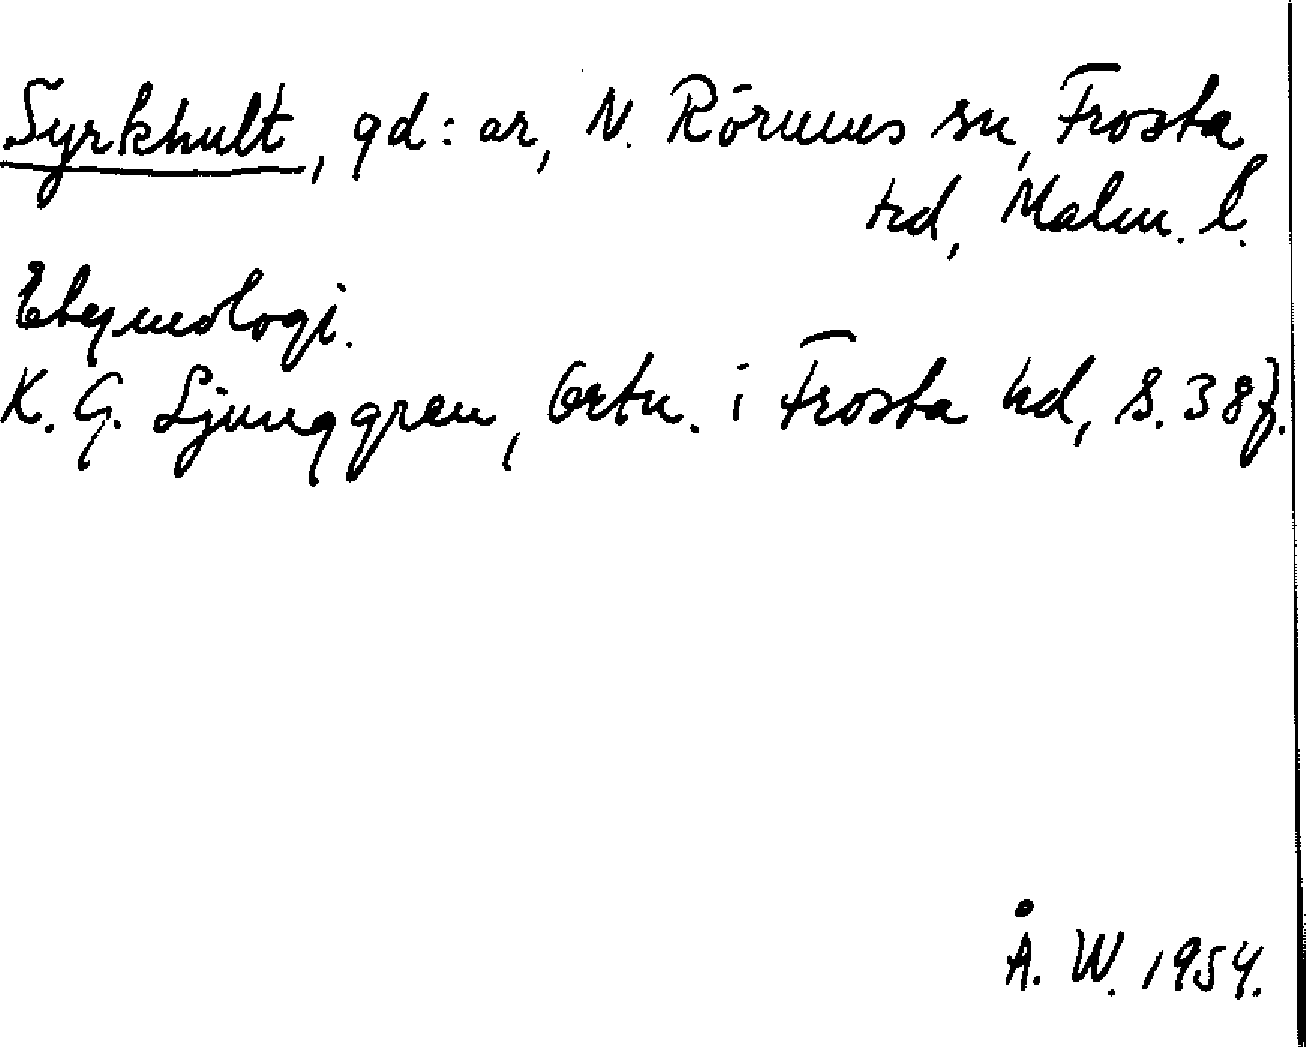 Syrkhult, gd:ar, N. Rörums sn, Frosta
hd, Malm. l.
Etymologi.
K. G. Ljunggren, Ortn. i Frosta hd, s. 38 f.
Å. W. 1954.